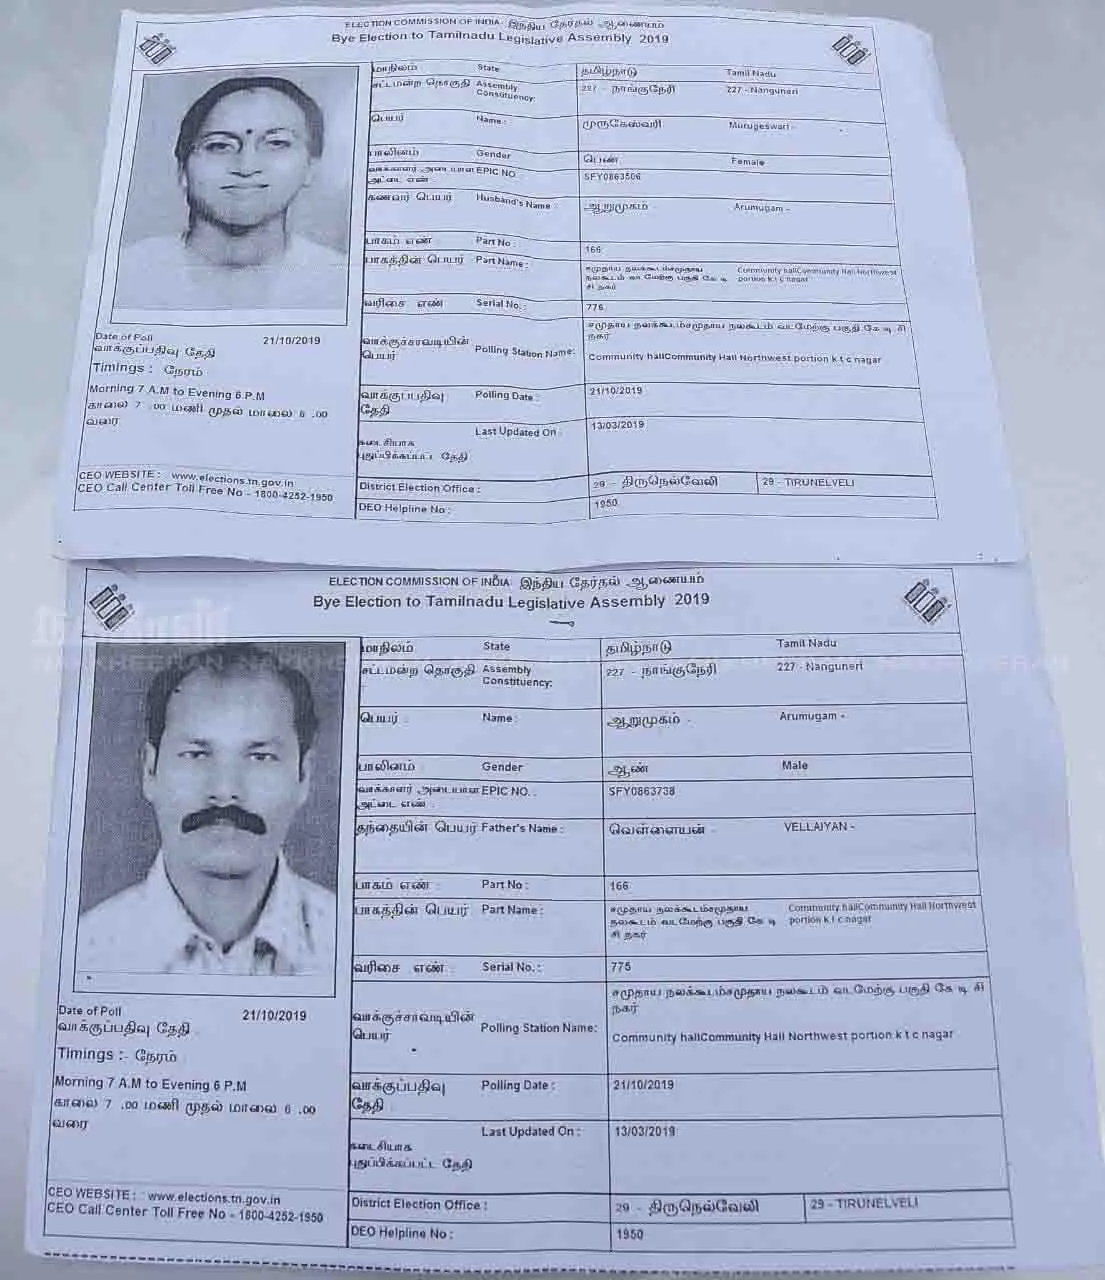 ELECTION COMMISSION OF INDIA இந்திய தேர்தல் ஆணையம்
Bye Election to Tamilnadu Legislative Assembly 2019
மாநிலம் State தமிழ்நாடு Tamil Nadu
சட்டமன்ற தொகுதி Assembly Constituency: 227 - நாங்குநேரி 227 - Nanguneri
பெயர் Name : முருகேஸ்வரி Murugeswari -
பாலினம் Gender பெண் Female
வாக்காளர் அடையாள அட்டை எண் EPIC NO SFY0863506
கணவர் பெயர் Husband's Name : ஆறுமுகம் - Arumugam -
பாகம் எண் Part No : 166
பாகத்தின் பெயர் Part Name : சமுதாய நலக்கூடம்சமுதாய Community hallCommunity Hall Northwest
நலகூடம் வடமேற்கு பகுதி கே டி portion k t c nagar
சி நகர்
வரிசை எண் Serial No. : 776
வாக்குச்சாவடியின் பெயர் Polling Station Name: சமுதாய நலக்கூடம்சமுதாய நலகூடம் வடமேற்கு பகுதி கே டி சி
நகர்
Community hallCommunity Hall Northwest portion k t c nagar
வாக்குப்பதிவு தேதி Polling Date : 21/10/2019
கடைசியாக புதுப்பிக்கப்பட்ட தேதி Last Updated On : 13/03/2019
District Election Office : 29 - திருநெல்வேலி 29 - TIRUNELVELI
DEO Helpline No : 1950
Date of Poll 21/10/2019
வாக்குப்பதிவு தேதி
Timings : நேரம்
Morning 7 A.M to Evening 6 P.M
காலை 7 .00 மணி முதல் மாலை 6 .00
வரை
CEO WEBSITE : www.elections.tn.gov.in
CEO Call Center Toll Free No - 1800-4252-1950
ELECTION COMMISSION OF INDIA இந்திய தேர்தல் ஆணையம்
Bye Election to Tamilnadu Legislative Assembly 2019
மாநிலம் State தமிழ்நாடு Tamil Nadu
சட்டமன்ற தொகுதி Assembly Constituency: 227 - நாங்குநேரி 227 - Nanguneri
பெயர் : Name : ஆறுமுகம் - Arumugam -
பாலினம் : Gender ஆண் Male
வாக்காளர் அடையாள அட்டை எண் : EPIC NO. : SFY0863738
தந்தையின் பெயர் Father's Name : வெள்ளையன் - VELLAIYAN -
பாகம் எண் : Part No : 166
பாகத்தின் பெயர் Part Name : சமுதாய நலக்கூடம்சமுதாய Community hallCommunity Hall Northwest
நலகூடம் வடமேற்கு பகுதி கே டி portion k t c nagar
சி நகர்
வரிசை எண் : Serial No. : 775
வாக்குச்சாவடியின் பெயர் Polling Station Name: சமுதாய நலக்கூடம்சமுதாய நலகூடம் வடமேற்கு பகுதி கே டி சி
நகர்
Community hallCommunity Hall Northwest portion k t c nagar
வாக்குப்பதிவு தேதி Polling Date : 21/10/2019
கடைசியாக புதுப்பிக்கப்பட்ட தேதி Last Updated On : 13/03/2019
District Election Office : 29 - திருநெல்வேலி 29 - TIRUNELVELI
DEO Helpline No : 1950
Date of Poll 21/10/2019
வாக்குப்பதிவு தேதி
Timings :- நேரம்
Morning 7 A.M to Evening 6 P.M
காலை 7 .00 மணி முதல் மாலை 6 .00
வரை
CEO WEBSITE : www.elections.tn.gov.in
CEO Call Center Toll Free No - 1800-4252-1950